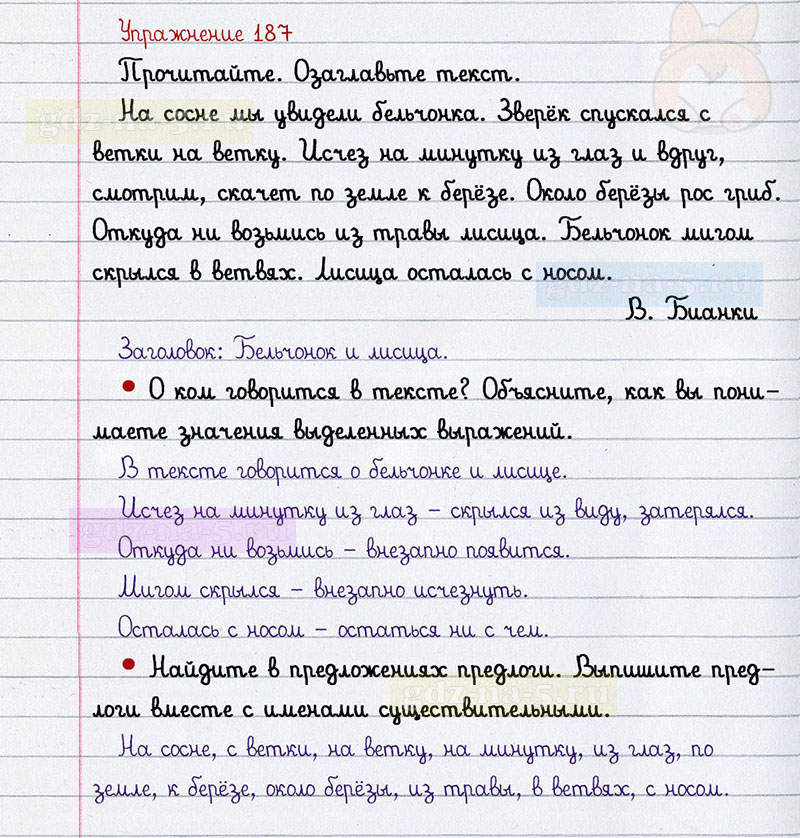 Упражнение 187
Прочитайте. Озаглавьте текст.
На сосне мы увидели бельчонка. Зверёк спускался с
ветки на ветку. Исчез на минутку из глаз и вдруг,
смотрим, скачет по земле к берёзе. Около берёзы рос гриб.
Откуда ни возьмись из травы лисица. Бельчонок мигом
скрылся в ветвях. Лисица осталась с носом.
В. Бианки
Заголовок: Бельчонок и лисица.
• О ком говорится в тексте? Объясните, как вы пони-
маете значения выделенных выражений.
В тексте говорится о бельчонке и лисице.
Исчез на минутку из глаз – скрылся из виду, затерялся.
Откуда ни возьмись – внезапно появится.
Мигом скрылся – внезапно исчезнуть.
Осталась с носом – остаться ни с чем.
• Найдите в предложениях предлоги. Выпишите пред-
логи вместе с именами существительными.
На сосне, с ветки, на ветку, на минутку, из глаз, по
земле, к берёзе, около берёзы, из травы, в ветвях, с носом.
gdz-na-5.ru
gdz-na-5.ru
gdz-na-5.ru
gdz-na-5.ru